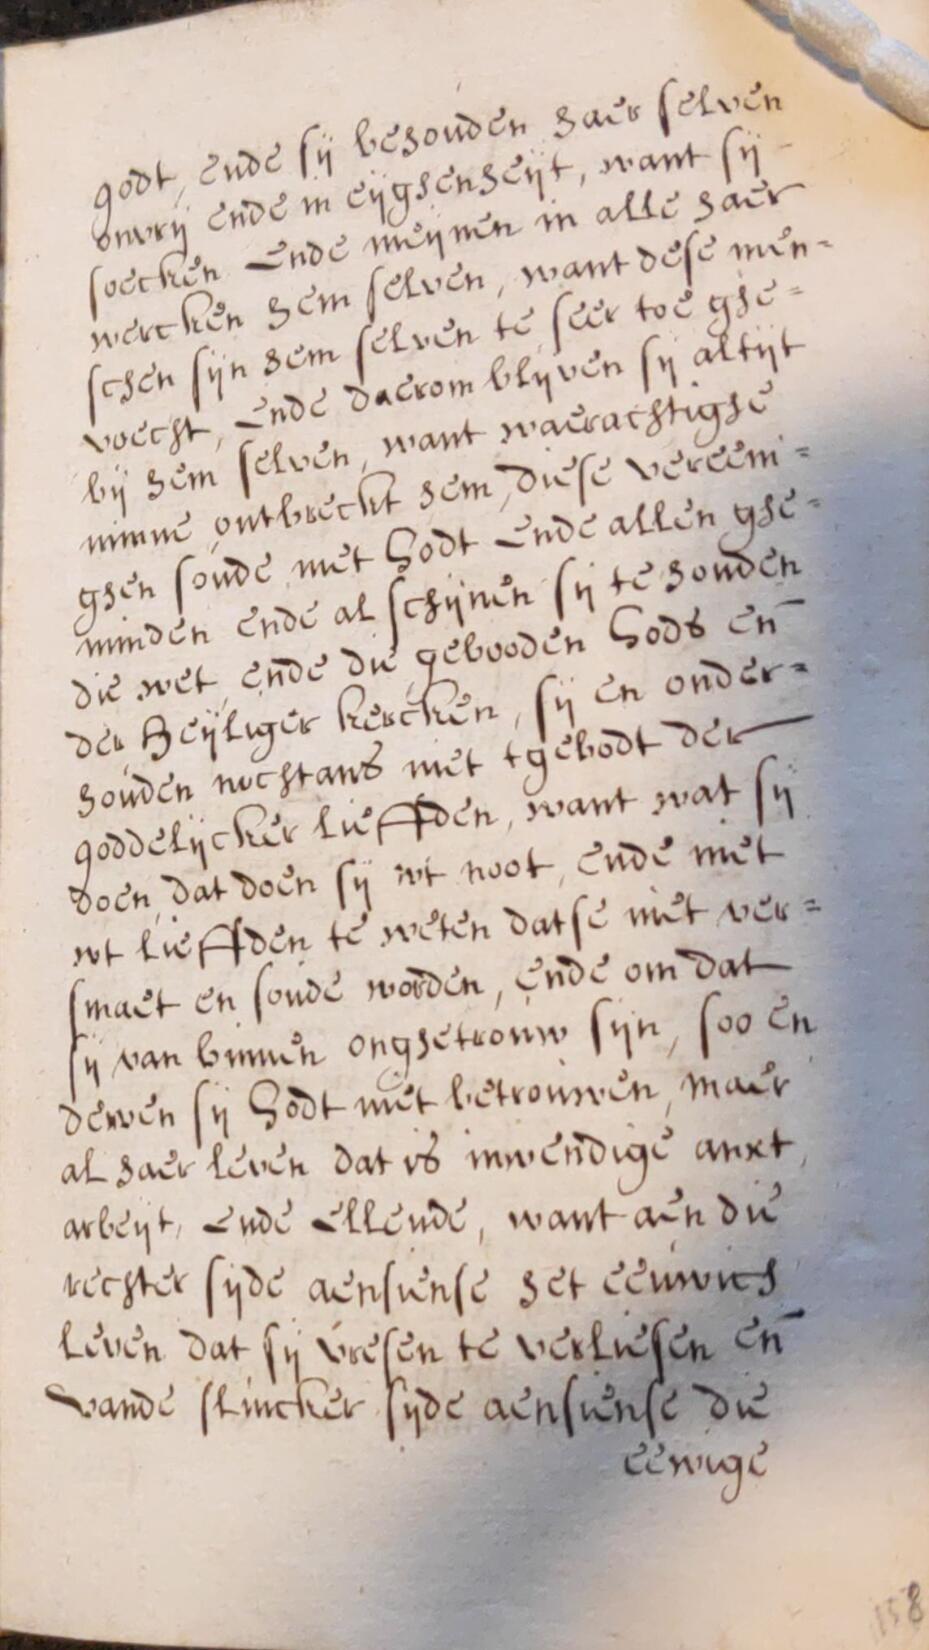 godt, ende sij behouden haer selven
onvrij ende in eijghenheijt, want sij
soecken Ende meijnen in alle haer
wercken hem selven, want dese men=
schen sijn hem selven te seer toe ghe=
voecht, Ende daerom blijven sij altijt
bij hem selven, want waerachtighe
minne ontbreckt hem, diese vereeni=
ghen soude met Godt Ende allen ghe=
minden ende al schijnen sij te houden
die wet, ende die gebooden Gods en̄
der Heijliger kercken, sij en onder=
houden nochtans niet tgebodt der
goddelijcker liefften, want wat sij
doen, dat doen sij wt noot, ende niet
wt lieffden te weten datse niet ver=
smaet en soude worden, ende om dat
sij van binnen onghetrouw sijn, soo en
derven sij Godt niet betrouwen, maer
al haer leven dat is inwendige anxt,
arbeijt, Ende Ellende, want aen die
rechter sijde aensiense het eeuwich
leven dat sij vresen te verliesen en̄
vande slincker sijde aensiense die
eewige
158